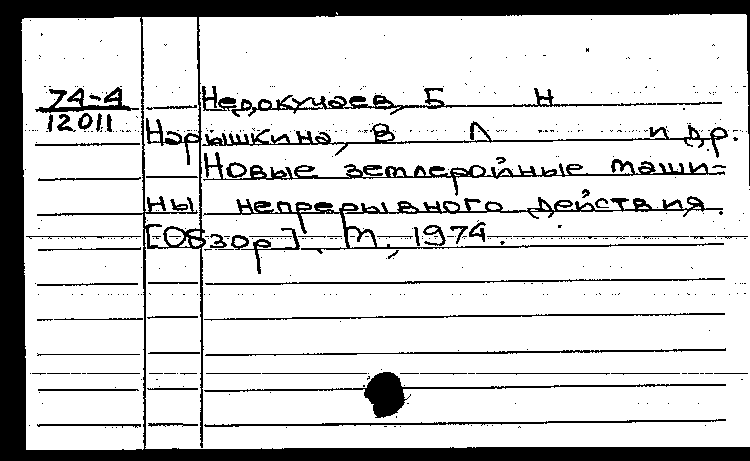 74-4
12011
Недокучаев, Б Н
Нарышкина, В Л и др.
Новые землеройные маши-
ны непрерывного действия.
[Обзор]. М., 1974.